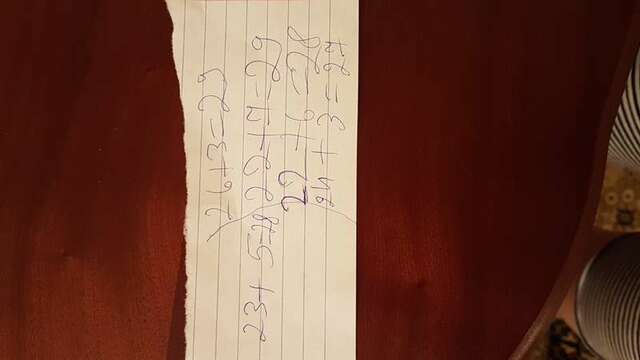 26+3=29
23+ 5=28
22+7=29
22 +6=28
24 + 3=27